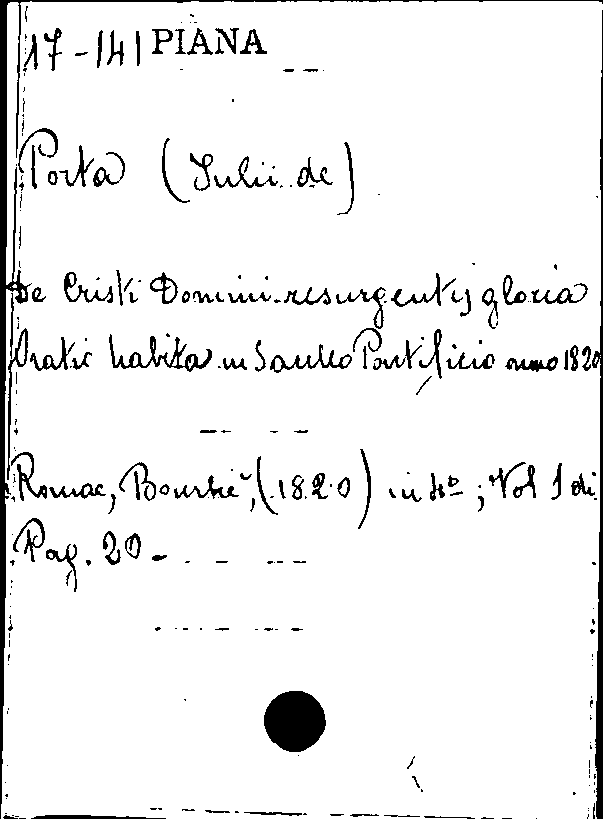 17-141 PIANA
Porta (Julii de)
De Cristi Domini resurgentis gloria
Oratio habita in Sacello Pontificio anno 1820
Romae, Bourlie, (1820) in 4º; Vol 1 di
Pag. 20 -